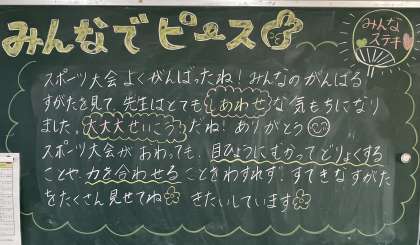 みんなでピース
みんな
ステキ
スポーツ大会よくがんばったね！みんなのがんばる
すがたを見て、先生はとてもしあわせな気もちになり
ました。大大大せいこうだね！ありがとう
スポーツ大会がおわっても、目ひょうにむかってどりょくする
ことや、力を合わせることをわすれず、すてきなすがた
をたくさん見せてね きたいしています